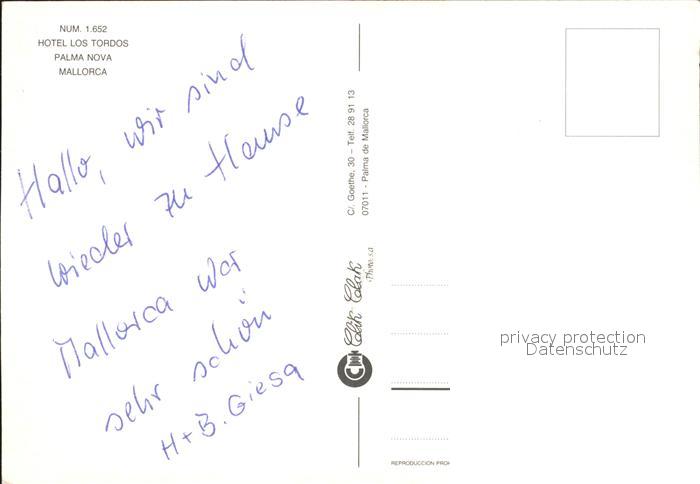 NUM. 1.652
HOTEL LOS TORDOS
PALMA NOVA
MALLORCA
Hallo, wir sind
wieder zu Hause
Mallorca war
sehr schön
H + B. Giesa
C/. Goethe, 30 – Telf. 28 91 13
07011 - Palma de Mallorca
Clik Clak
REPRODUCCION PROH
privacy protection
Datenschutz